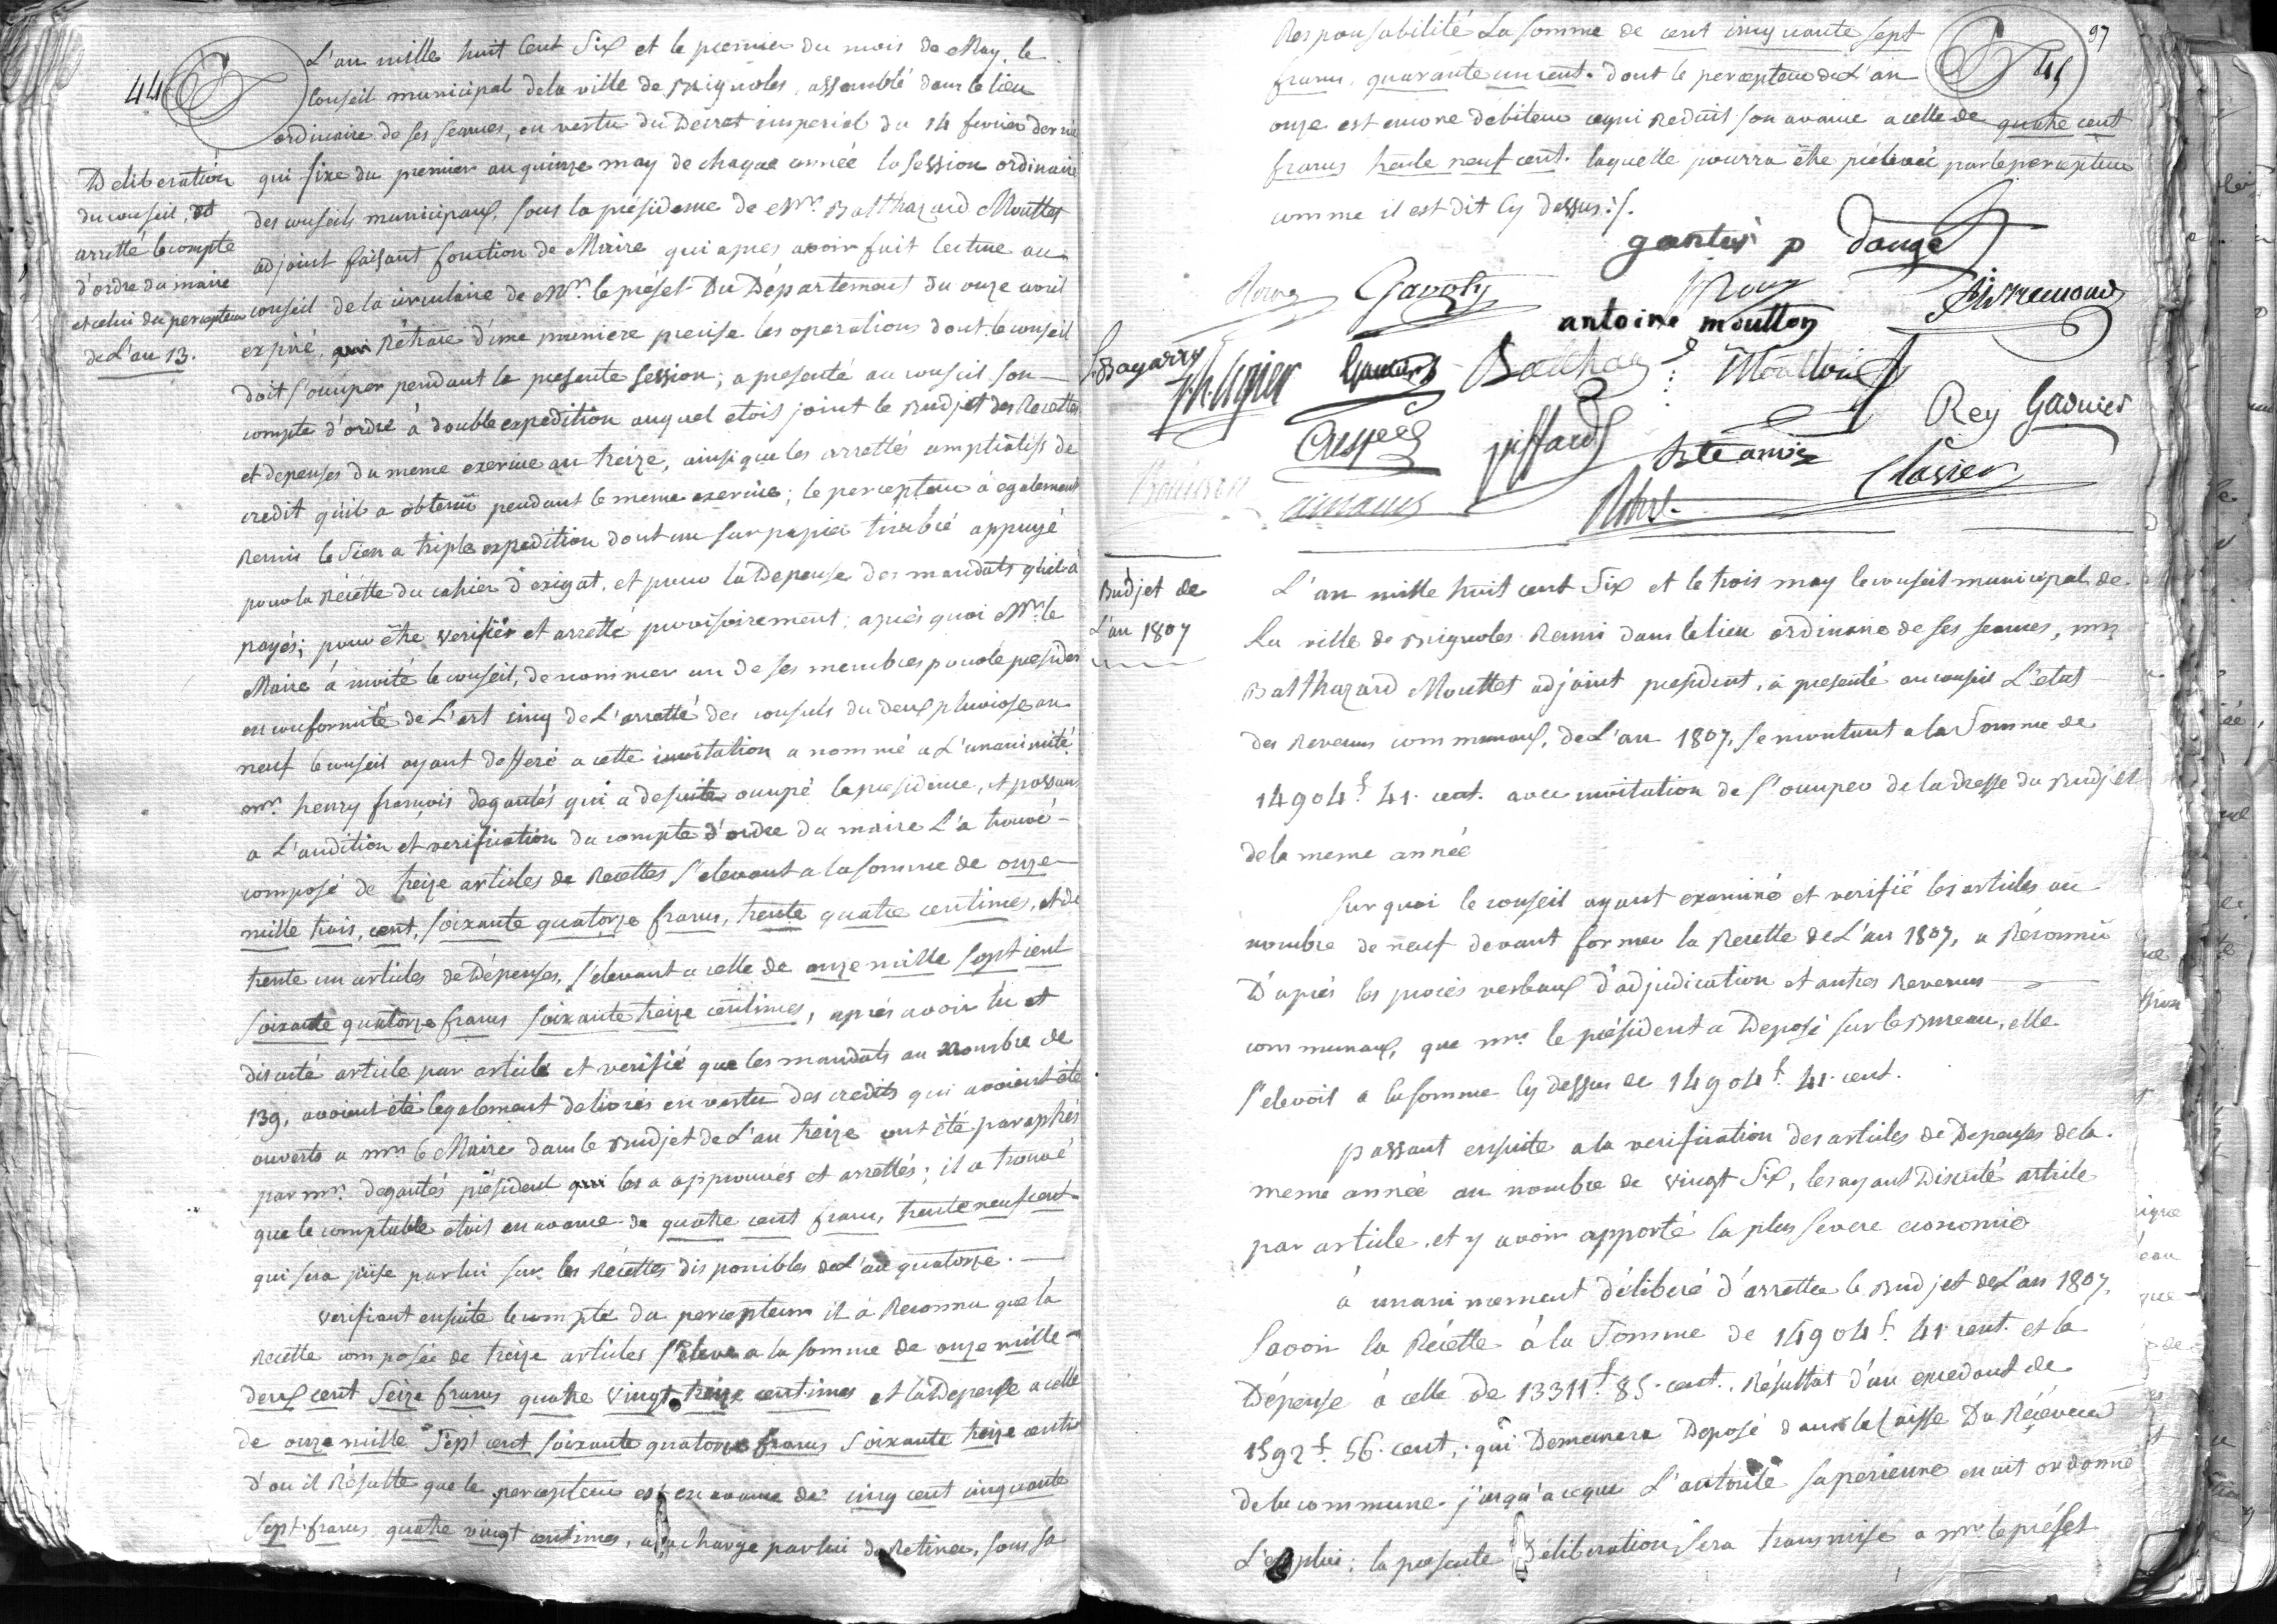 44
L'an mille huit Cent Six et le premier du mois de May, le
Conseil municipal dela ville de Brignoles, assemblé dans le lieu
ordinaire de ses seances, en vertu du Decret imperial du 14 fevrier dernier
qui fixe du premier au quinze may de chaque année la session ordinaire
des conseils municipaux, sous la présidence de Mr. Balthazard Mouttet
adjoint faisant fonction de Maire qui apres avoir fait lecture au
conseil de la circulaire de Mr. le préfet Du Département du onze avril
expiré, qui Rétrace d'une maniere precise les operations dont le conseil
doit s'occuper pendant la presente session; a presenté au conseil son
compte d'ordre à double expedition auquel etoit joint le Budjet des Recettes
et depenses du meme exercice an treize, ainsi que les arrettés ampliatifs de
credit qu'il a obtenu pendant le meme exercice; le percepteur à egalement
Remis le Sien a triple expedition dont un sur papier timbré appuyé
pour la Récétte du cahier d'exigat. et pour la Depense des mandats qu'il a
payés; pour être verifiés et arretté provisoirement; aprés quoi Mr. le
Maire à invité le conseil, de nommer un de ses membres pour le presider
en conformité de L'art cinq de L'arretté des consuls du deux pluviose an
neuf le conseil ayant defferé a cette invitation a nommé a L'unanimité
Mr. henry françois degantés qui a desuite occupé la presidence, et passant
a L'audition et verification du compte d'ordre du maire L'a trouvé
composé de treize articles de Recettes S'elevant a la somme de onze
mille trois, cent, soixante quatorze francs, trente quatre centimes, et de
trente un articles de Dépenses, S'elevant a celle de onze mille Sept cent
Soixante quatorze francs soixante treize centimes, aprés avoir lu et
discuté article par article et verifié que les mandats au nombre de
139, avoient été legalement delivrés en vertu des credits qui avoient été
ouverts a mr. le Maire dans le Budjet de L'an treize ont été paraphés
par mr. degantés président qui les a approuvés et arrettés; il a trouvé
que le comptable etoit en avance de quatre cent francs, trente neuf cent.
qui sera prise par lui sur les Récettes disponibles de L'an quatorze.
Verifiant ensuite le compte du percepteur il à Reconnu que la
Recette composée de treize articles S'éleve a la somme de onze mille
deux cent Seize francs quatre vingt treize centimes et la Depense a celle
de onze mille Sept cent soixante quatorze francs Soixante treize centi.
d'ou il Résulte que le percepteur est en avance de cinq cent cinquante
Sept francs quatre vingt centimes, a la charge par lui de Retirer, sous sa
Deliberation
du conseil, et
arretté le compte
d'ordre du maire
et celui du percepteur
de L'an 13.
97
45
Responsabilité La somme de cent cinquante sept
francs quarante un cent. dont le percepteur de L'an
onze est encore débiteur ce qui Reduit son avance a celle de quatre cent
francs trente neuf cent. laquelle pourra être prélevée par le percepteur
comme il est dit Cy dessus./.
gantés p Dauge
Gavoty
Roux
antoine moutton
L. Bagarry
Balthaz
Crespel
piffard
Rey Gasnier
Clavier
Robert
Budjet de
L'an 1807
L'an mille huit cent Six et le trois may le conseil municipal de
La ville de Brignoles Reuni dans le lieu ordinaire de ses seances, mr.
Balthazard Mouttet adjoint president, à presenté au conseil L'etat
des Revenus communaux, de L'an 1807, se montant a la Somme de
14904f. 41. cent. avec invitation de s'occuper de la dresse du Budjet
de la meme année
Sur quoi le conseil ayant examiné et verifié les articles au
nombre de neuf devant former la Recette de L'an 1807, a Réconnu
D'aprés les procés verbaux d'adjudication et autres Revenus
communaux, que mr. le président a Deposé sur le Bureau, elle
S'elevoit a la somme Cy dessus de 14904f. 41. cent.
passant ensuite a la verification des articles de Depenses de la
meme année au nombre de vingt Six, les ayant Discuté article
par article, et y avoir apporté la plus severe economie
à unanimement déliberé d'arretter le Budjet de L'an 1807.
Savoir la Récette à la Somme de 14904f. 41. cent. et la
Dépense à celle de 13311f. 85. cent. Résultat d'un excedant de
1592f. 56. cent, qui Demeurera Deposé dans la Caisse Du Récéveur
de la commune jusqu'a ce que L'autorité superieure en ait ordonné
L'emploi; la presente Déliberation Sera transmise a mr. le préfet